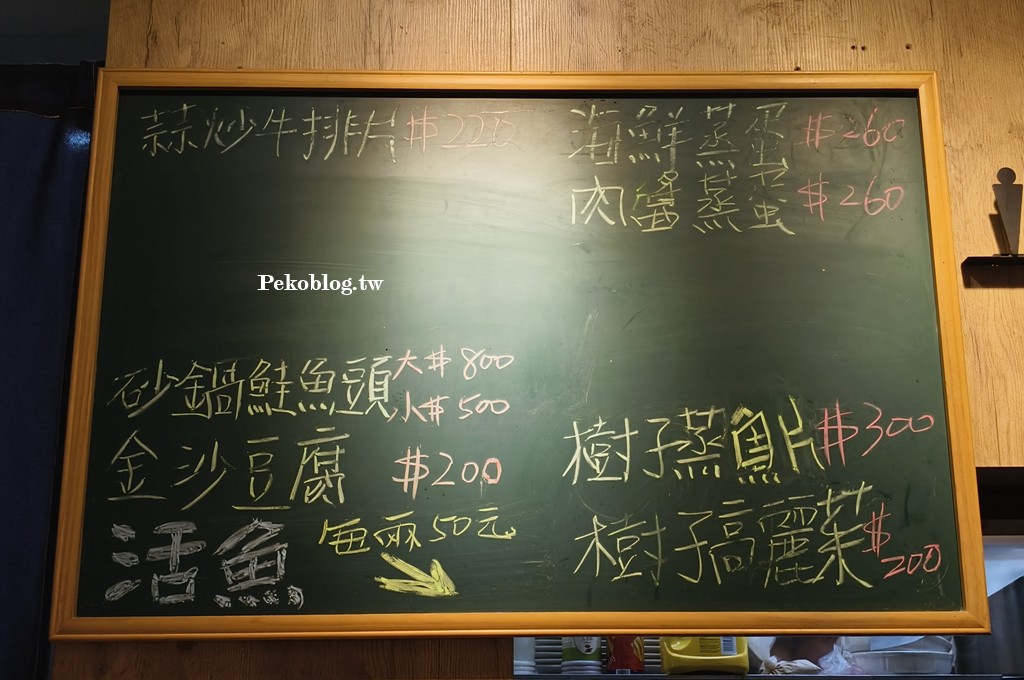 蒜炒牛排片 $220
海鮮蒸蛋 $260
肉醬蒸蛋 $260
Pekoblog.tw
砂鍋鮭魚頭 大$800
小$500
金沙豆腐 $200
活魚 每兩50元
樹子蒸魚片 $300
樹子高麗菜 $200